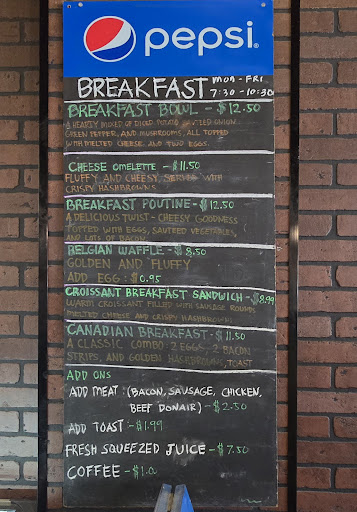 pepsi
BREAKFAST MON - FRI
7:30 - 10:30
BREAKFAST BOWL - $12.50
A HEARTY MIXED OF DICED POTATO, SAUTEED ONION
GREEN PEPPER, AND MUSHROOMS, ALL TOPPED
WITH MELTED CHEESE AND TWO EGGS.
CHEESE OMELETTE - $11.50
FLUFFY AND CHEESY, SERVED WITH
CRISPY HASHBROWNS
BREAKFAST POUTINE - $12.50
A DELICIOUS TWIST - CHEESY GOODNESS
TOPPED WITH EGGS, SAUTEED VEGETABLES,
AND LOTS OF BACON
BELGIAN WAFFLE - $8.50
GOLDEN AND FLUFFY
ADD EGG - $0.95
CROISSANT BREAKFAST SANDWICH - $8.99
WARM CROISSANT FILLED WITH SAUSAGE ROUNDS
MELTED CHEESE AND CRISPY HASHBROWNS
CANADIAN BREAKFAST - $11.50
A CLASSIC COMBO: 2 EGGS, 2 BACON
STRIPS, AND GOLDEN HASHBROWNS, TOAST
ADD ONS
ADD MEAT: (BACON, SAUSAGE, CHICKEN,
BEEF DONAIR) - $2.50
ADD TOAST - $1.99
FRESH SQUEEZED JUICE - $7.50
COFFEE - $1.0